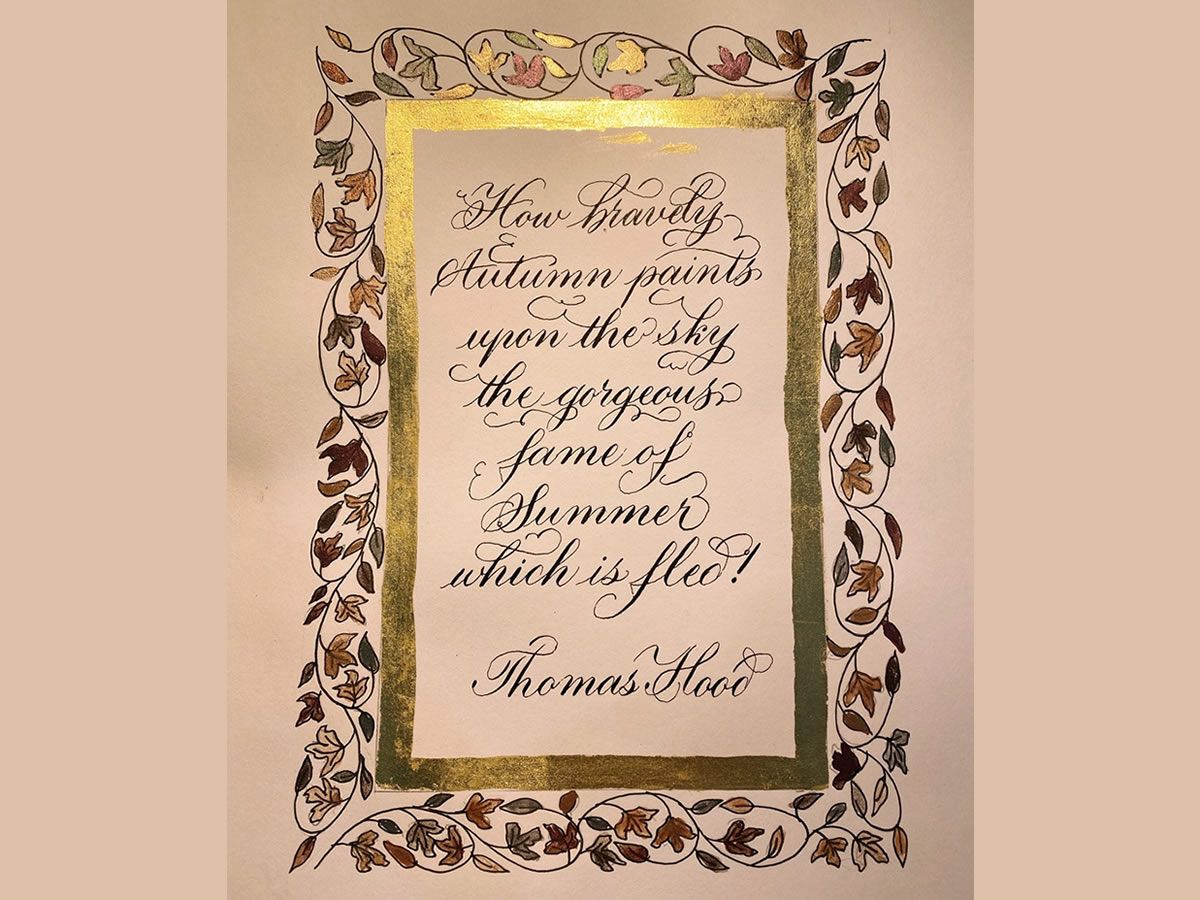 How bravely
Autumn paints
upon the sky
the gorgeous
fame of
Summer
which is fled!
Thomas Hood